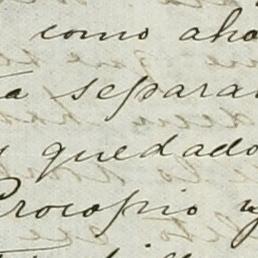 como aho
a separa
y quedado
Procopio y